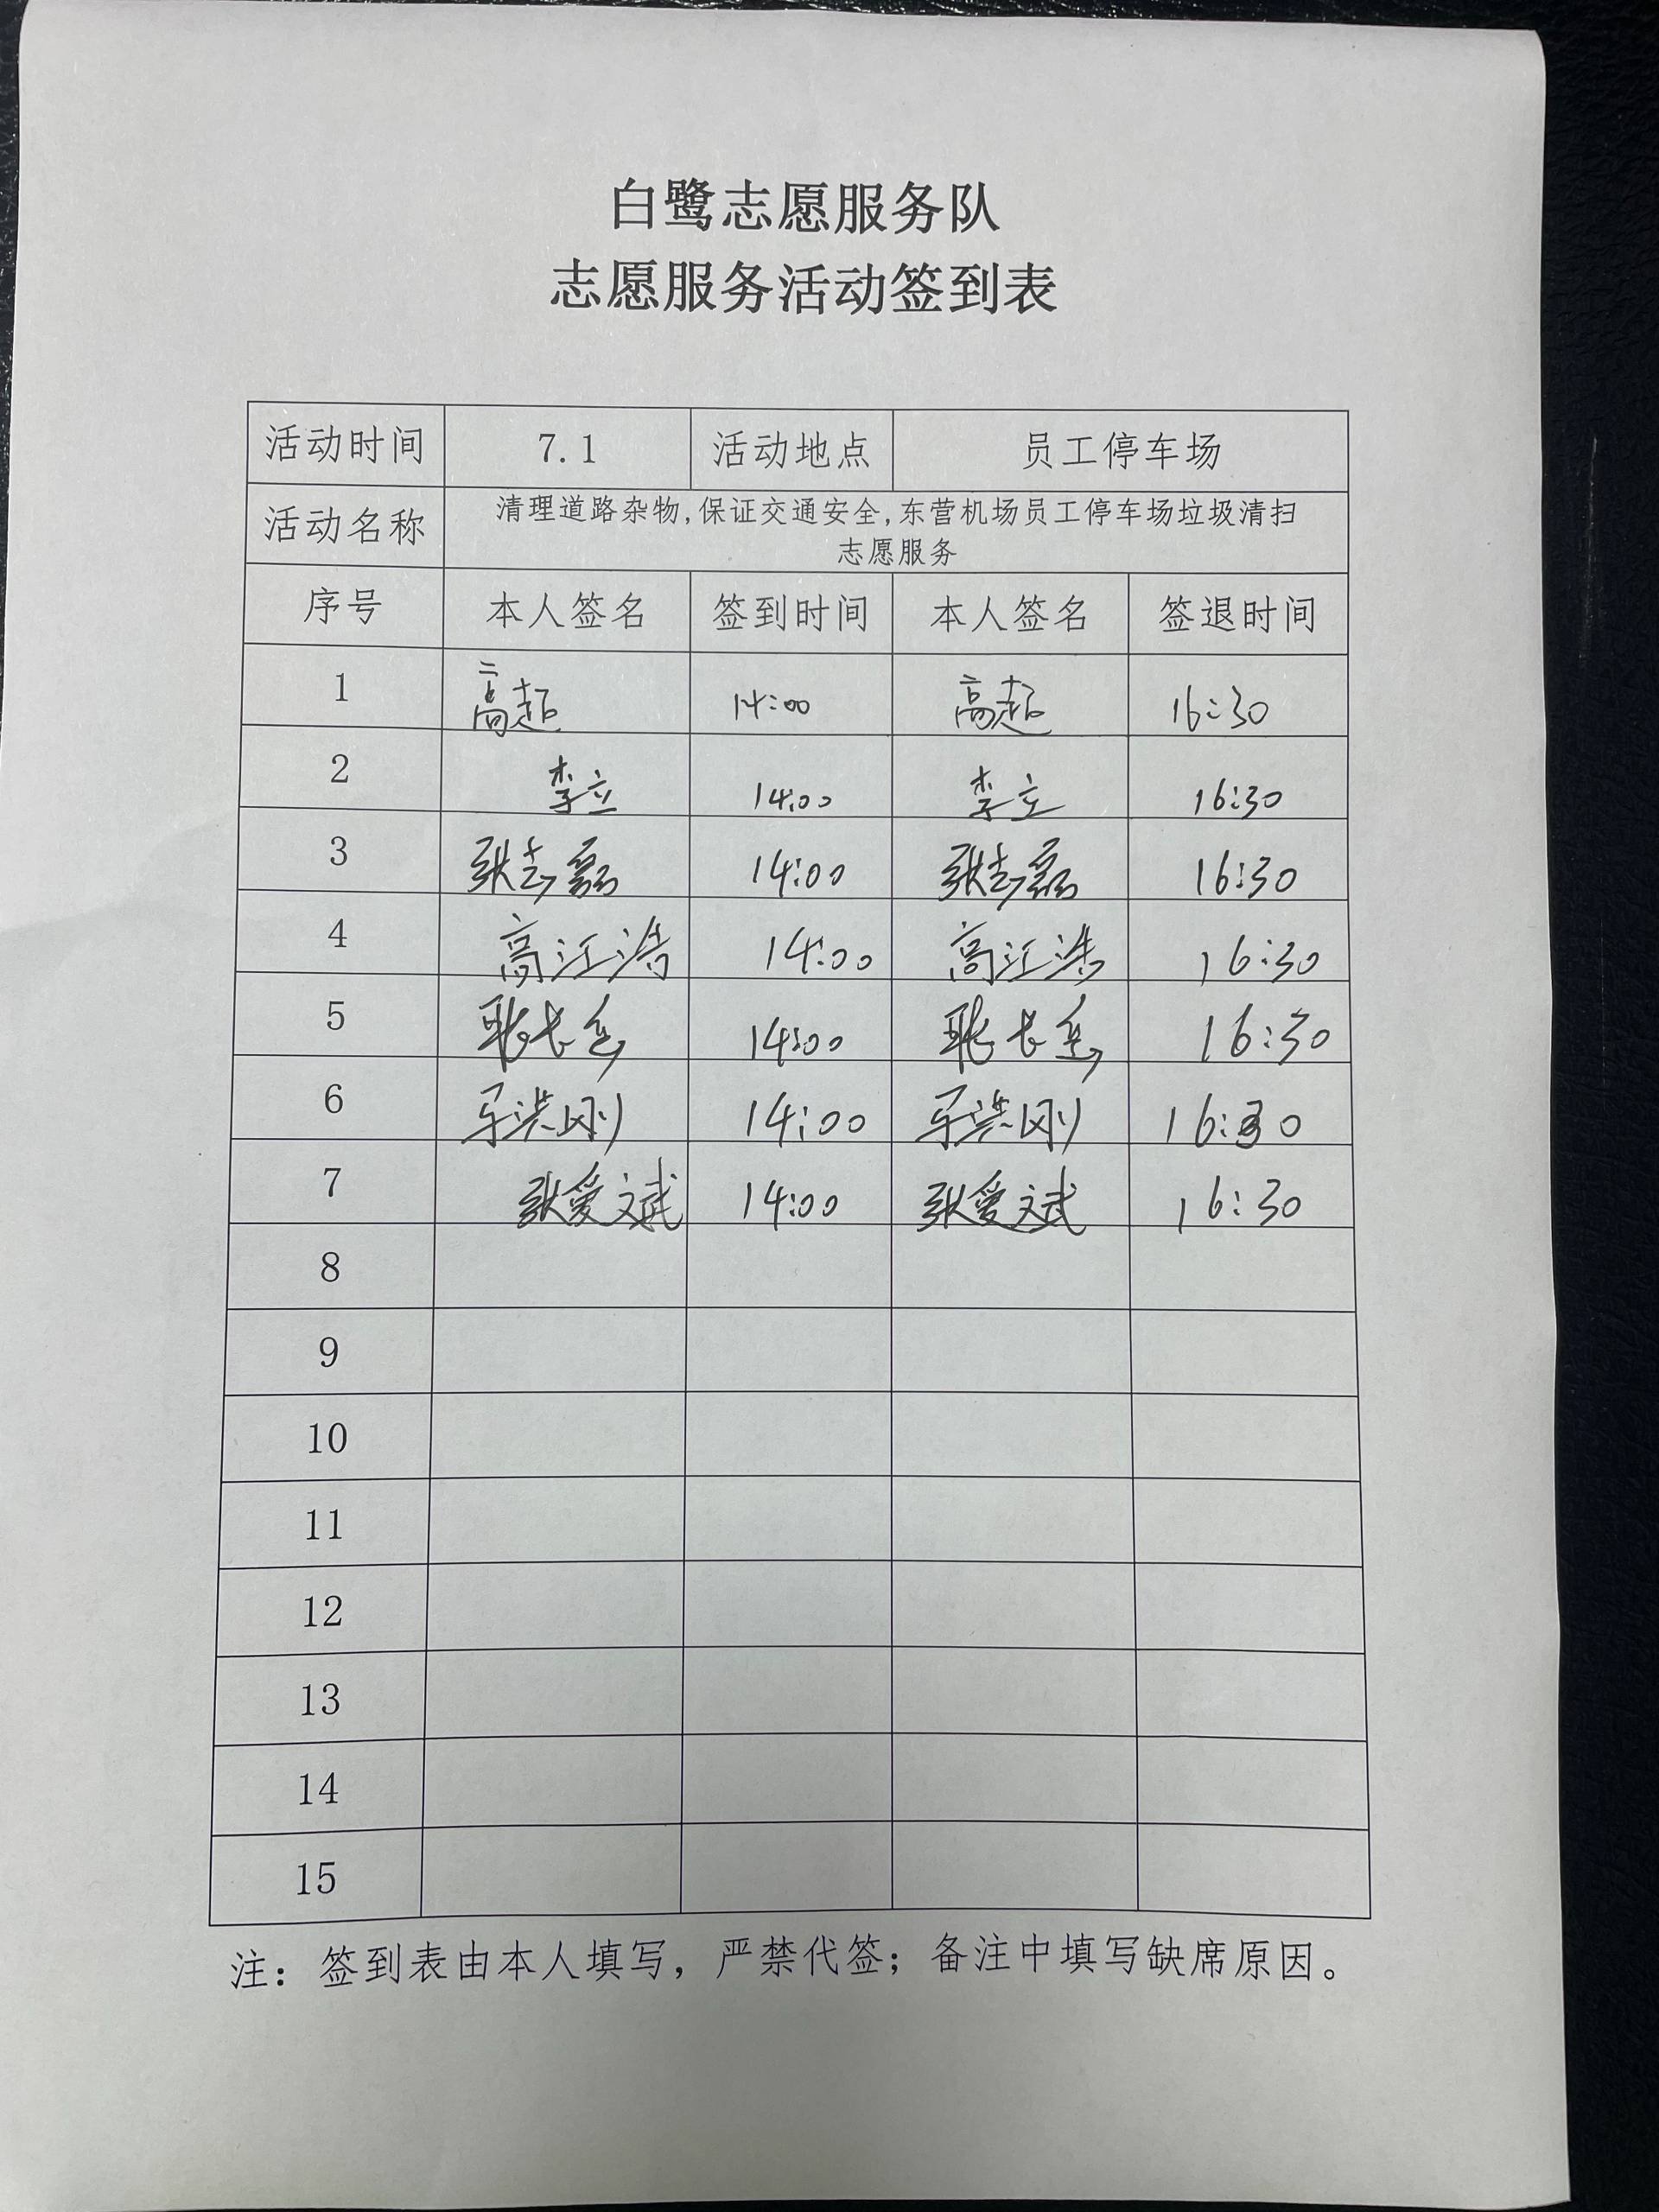 白鹭志愿服务队
志愿服务活动签到表
活动时间 7.1 活动地点 员工停车场
活动名称 清理道路杂物,保证交通安全,东营机场员工停车场垃圾清扫
志愿服务
序号 本人签名 签到时间 本人签名 签退时间
1 高超 14:00 高超 16:30
2 李立 14:00 李立 16:30
3 张志磊 14:00 张志磊 16:30
4 高江浩 14:00 高江浩 16:30
5 14:00 16:30
6 14:00 16:30
7 张爱文斌 14:00 张爱斌 16:30
8
9
10
11
12
13
14
15
注：签到表由本人填写，严禁代签；备注中填写缺席原因。